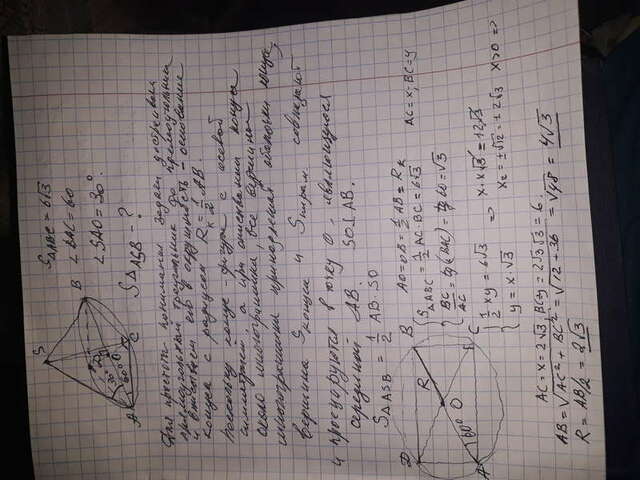 S
B
A
C
O
30°
60°
S△ABC = 6√3
∠BAC = 60
∠SAO = 30°.
S△ASB - ?
Для простоты понимания задачи достроим
прямоугольный треугольник до прямоугольника
и впишем его в окружность - основание
конуса с радиусом Rк = 1/2 AB.
Поскольку конус - фигура с осевой
симметрией, а при описывании конуса
около многогранника, все вершины
многогранника принадлежат оболочки конуса,
вершина Sконуса и Sпирам. совпадают
и проецируются в точку O, являющуюся
серединой AB. SO⊥AB.
S△ASB = 1/2 AB·SO
AO=OB=1/2 AB=Rк
D
B
R
O
A
60°
C
S△ABC = 1/2 AC·BC = 6√3
AC=x; BC=y
BC/AC = tg(BAC) = tg 60 = √3
1/2 xy = 6√3
y = x·√3
=> x·x√3 = 12√3
x₂ = ±√12 = ±2√3 x>0 =>
AC = x = 2√3; BC=y = 2√3·√3 = 6.
AB = √AC² + BC² = √12 + 36 = √48 = 4√3
R = AB/2 = 2√3